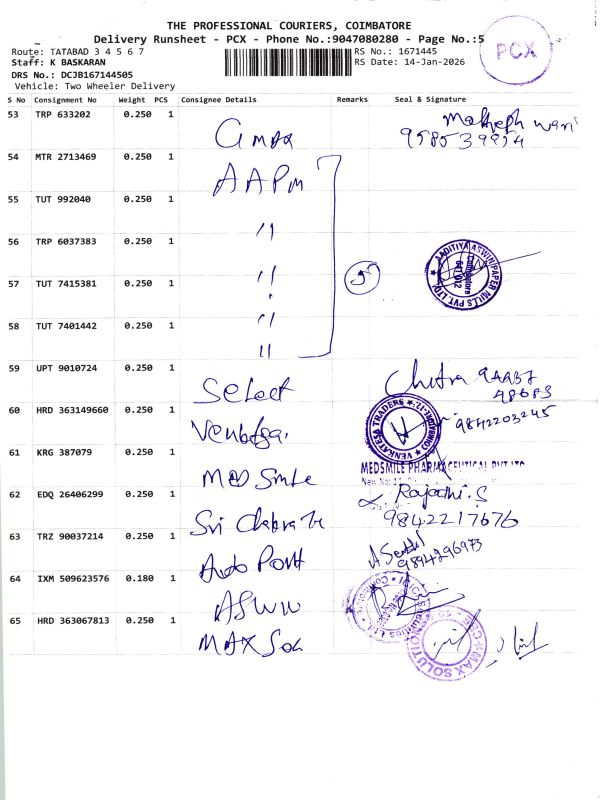 THE PROFESSIONAL COURIERS, COIMBATORE
Delivery Runsheet - PCX - Phone No.:9047080280 - Page No.:5
PCX
Route: TATABAD 3 4 5 6 7
RS No.: 1671445
Staff: K BASKARAN
RS Date: 14-Jan-2026
DRS No.: DCJB167144505
Vehicle: Two Wheeler Delivery
S No Consignment No Weight PCS Consignee Details Remarks Seal & Signature
53 TRP 633202 0.250 1
54 MTR 2713469 0.250 1 AAPM
55 TUT 992040 0.250 1 "
56 TRP 6037383 0.250 1 "
57 TUT 7415381 0.250 1 " 5
58 TUT 7401442 0.250 1 "
AADITIYA ASWIN PAPER MILLS PVT. LTD.
Coimbatore
641 012
59 UPT 9010724 0.250 1 Select Chitra
60 HRD 363149660 0.250 1 9842203245
VENKATESA TRADERS
61 KRG 387079 0.250 1 Med Smile
MEDSMILE PHARMACEUTICAL PVT LTD
62 EDQ 26406299 0.250 1 Sri Chakra
9842217676
63 TRZ 90037214 0.250 1 Auto Point
9894296973
64 IXM 509623576 0.180 1
65 HRD 363067813 0.250 1 MAX SOL